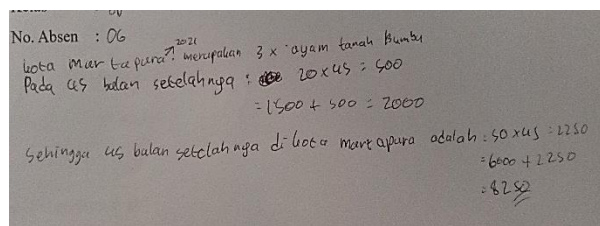 No. Absen : 06
2021
kota martapura merupakan 3 x ayam tanah Bumbu
Pada 45 bulan setelahnya : 20 x 45 = 500
= 1500 + 500 = 2000
Sehingga 45 bulan setelahnya di kota martapura adalah : 50 x 45 = 2250
= 6000 + 2250
= 8250